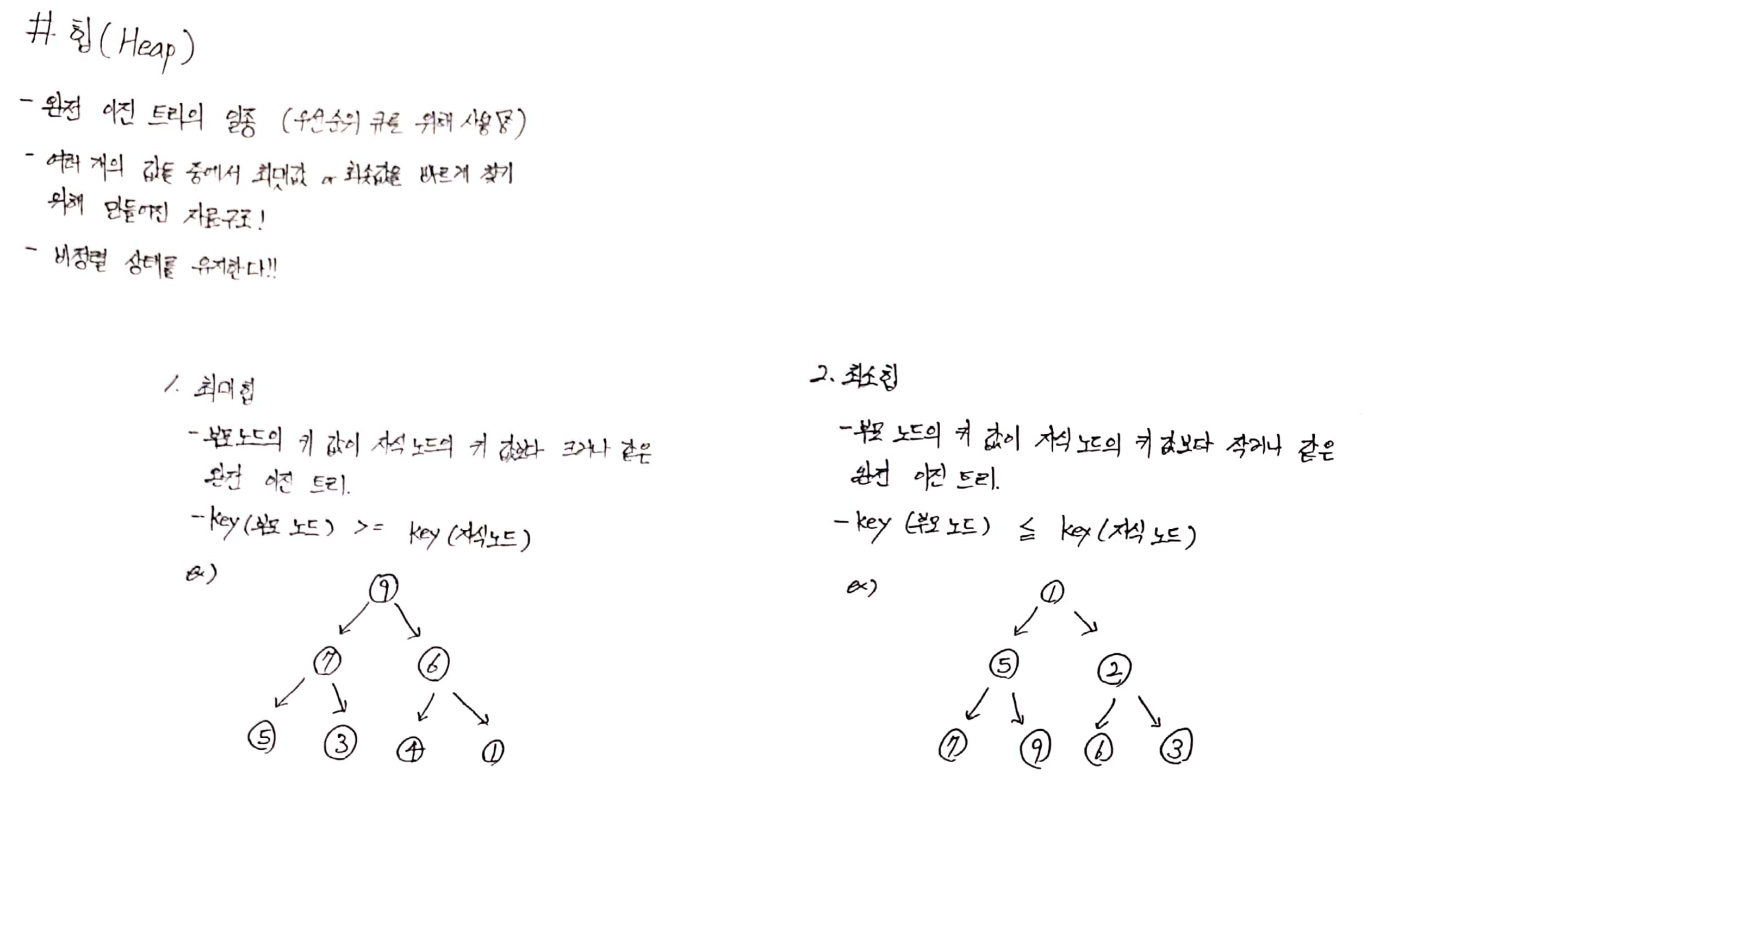 # 힙(Heap)
- 완전 이진 트리의 일종 (우선순위 큐를 위해 사용됨)
- 여러 개의 값들 중에서 최댓값 or 최솟값을 빠르게 찾기
위해 만들어진 자료구조!
- 반정렬 상태를 유지한다!!
1. 최대힙
- 부모노드의 키 값이 자식노드의 키 값보다 크거나 같은
완전 이진 트리.
- key(부모 노드) >= key(자식노드)
ex)
9
7 6
5 3 4 1
2. 최소힙
- 부모 노드의 키 값이 자식노드의 키 값보다 작거나 같은
완전 이진 트리.
- key (부모 노드) ≦ key(자식 노드)
ex)
1
5 2
7 9 6 3